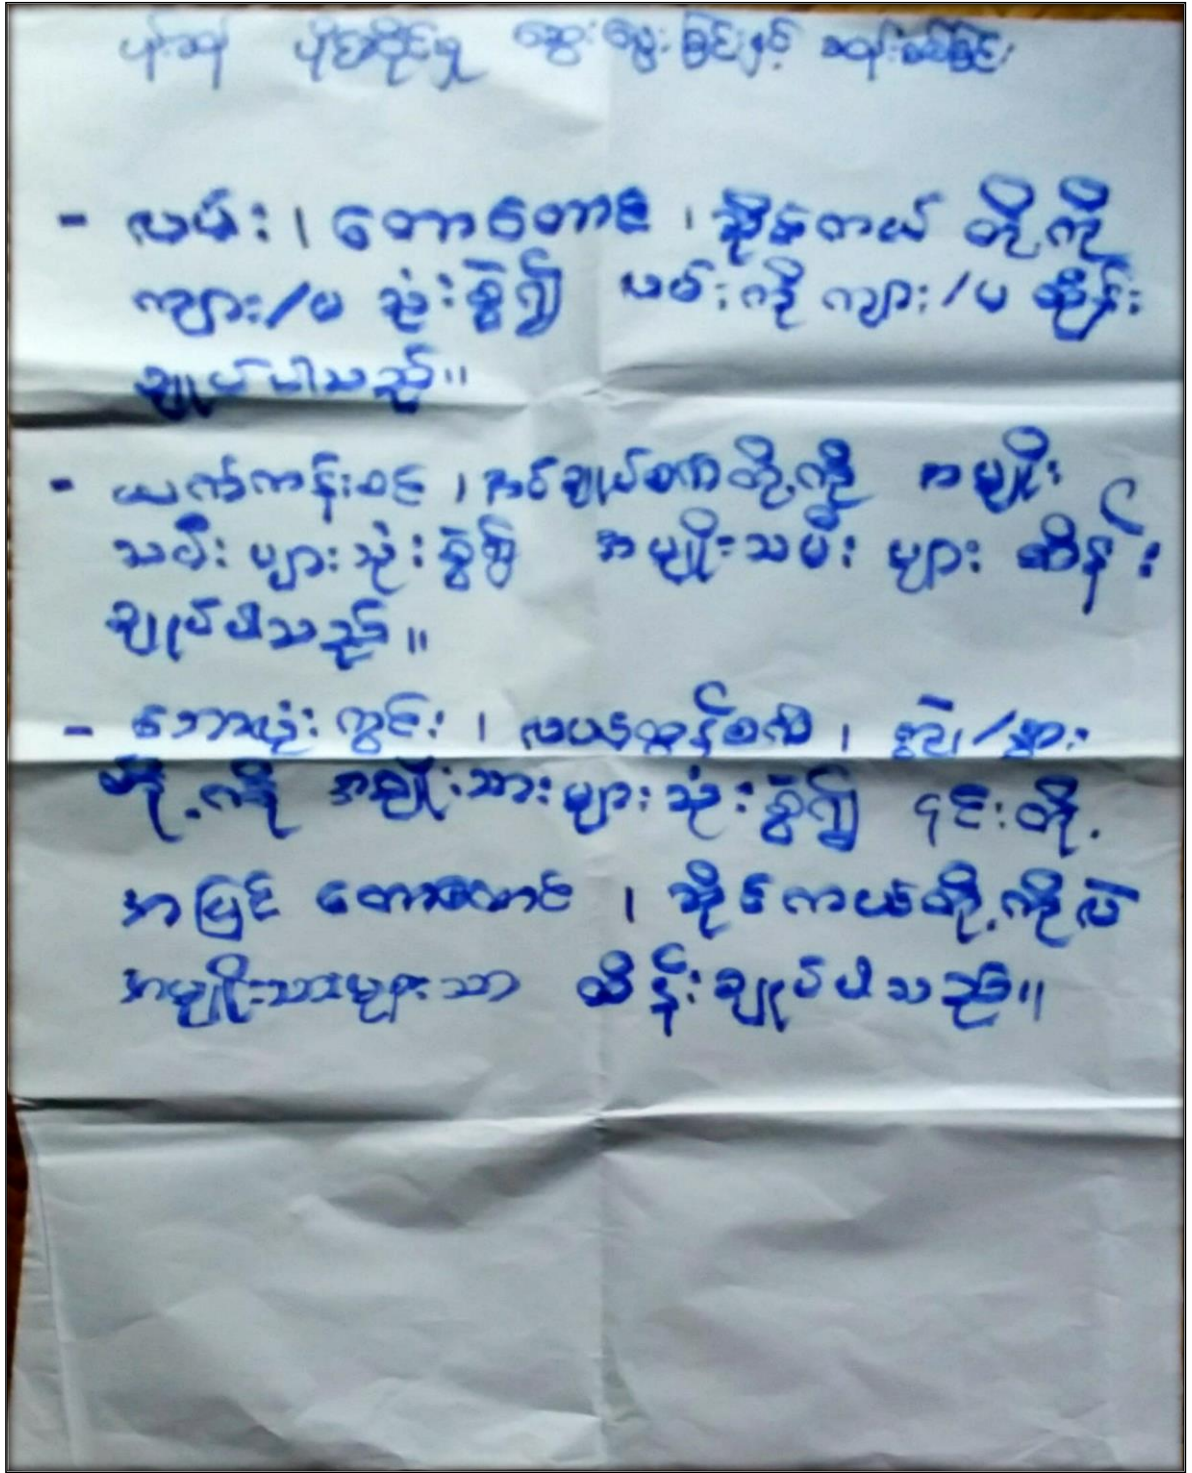 ပိုင်ဆိုင်မှု ဆွေးနွေးခြင်းနှင့် ဆန်းစစ်ခြင်း
- လမ်း၊ တောတောင်၊ ဆိုင်ကယ် တို့ကို
ကျား/မ သုံးစွဲ၍ လမ်းကို ကျား/မ ထိန်း
ချုပ်ပါသည်။
- ယက်ကန်းစင်၊ အပ်ချုပ်စက်တို့ကို အမျိုး
သမီး များသုံးစွဲ၍ အမျိုးသမီး များ ထိန်း
ချုပ်ပါသည်။
- ဘောလုံး ကွင်း၊ လယ်ထွန်စက်၊ ကျွဲ/နွား
တို့ကို အမျိုးသားများသုံးစွဲ၍ ၎င်းတို့
အပြင် တောတောင်၊ ဆိုင်ကယ်တို့ကိုလဲ
အမျိုးသားများသာ ထိန်းချုပ်ပါသည်။